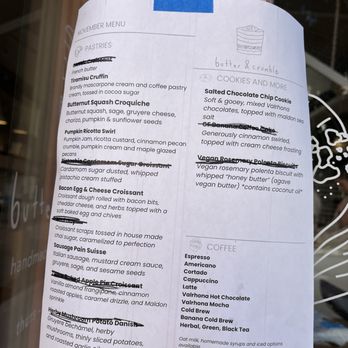 NOVEMBER MENU
PASTRIES
French butter
Tiramisu Cruffin
Brandy mascarpone cream and coffee pastry
cream, tossed in cocoa sugar
Butternut Squash Croquiche
Butternut squash, sage, gruyere cheese,
chorizo, pumpkin & sunflower seeds
Pumpkin Ricotta Swirl
Pumpkin jam, ricotta custard, cinnamon pecan
crumble, pumpkin cream and maple glazed
pecans
Sugar Croissant
Cardamom sugar dusted, whipped
pistachio cream stuffed
Bacon Egg & Cheese Croissant
Croissant dough rolled with bacon bits,
cheddar cheese, and herbs topped with a
soft baked egg and chives
Croissant scraps tossed in house made
chai sugar, caramelized to perfection
Sausage Pain Suisse
Italian sausage, mustard cream sauce,
gruyere, sage, and sesame seeds
Apple Pie Croissant
Vanilla almond frangipane, cinnamon
roasted apples, caramel drizzle, and Maldon
sprinkle
Herby Mushroom Potato Danish
Gruyere béchamel, herby
mushrooms, thinly sliced potatoes,
and roasted garlic
butter & crumble
COOKIES AND MORE
Salted Chocolate Chip Cookie
Soft & gooey, mixed Valrhona
chocolates, topped with maldon sea
salt
Generously cinnamon swirled,
topped with cream cheese frosting
Vegan Rosemary Polenta Biscuit
Vegan rosemary polenta biscuit with
whipped "honey butter" (agave
vegan butter) *contains coconut oil*
COFFEE
Espresso
Americano
Cortado
Cappuccino
Latte
Valrhona Hot Chocolate
Valrhona Mocha
Cold Brew
Banana Cold Brew
Herbal, Green, Black Tea
Oat milk, homemade syrups and iced options
available